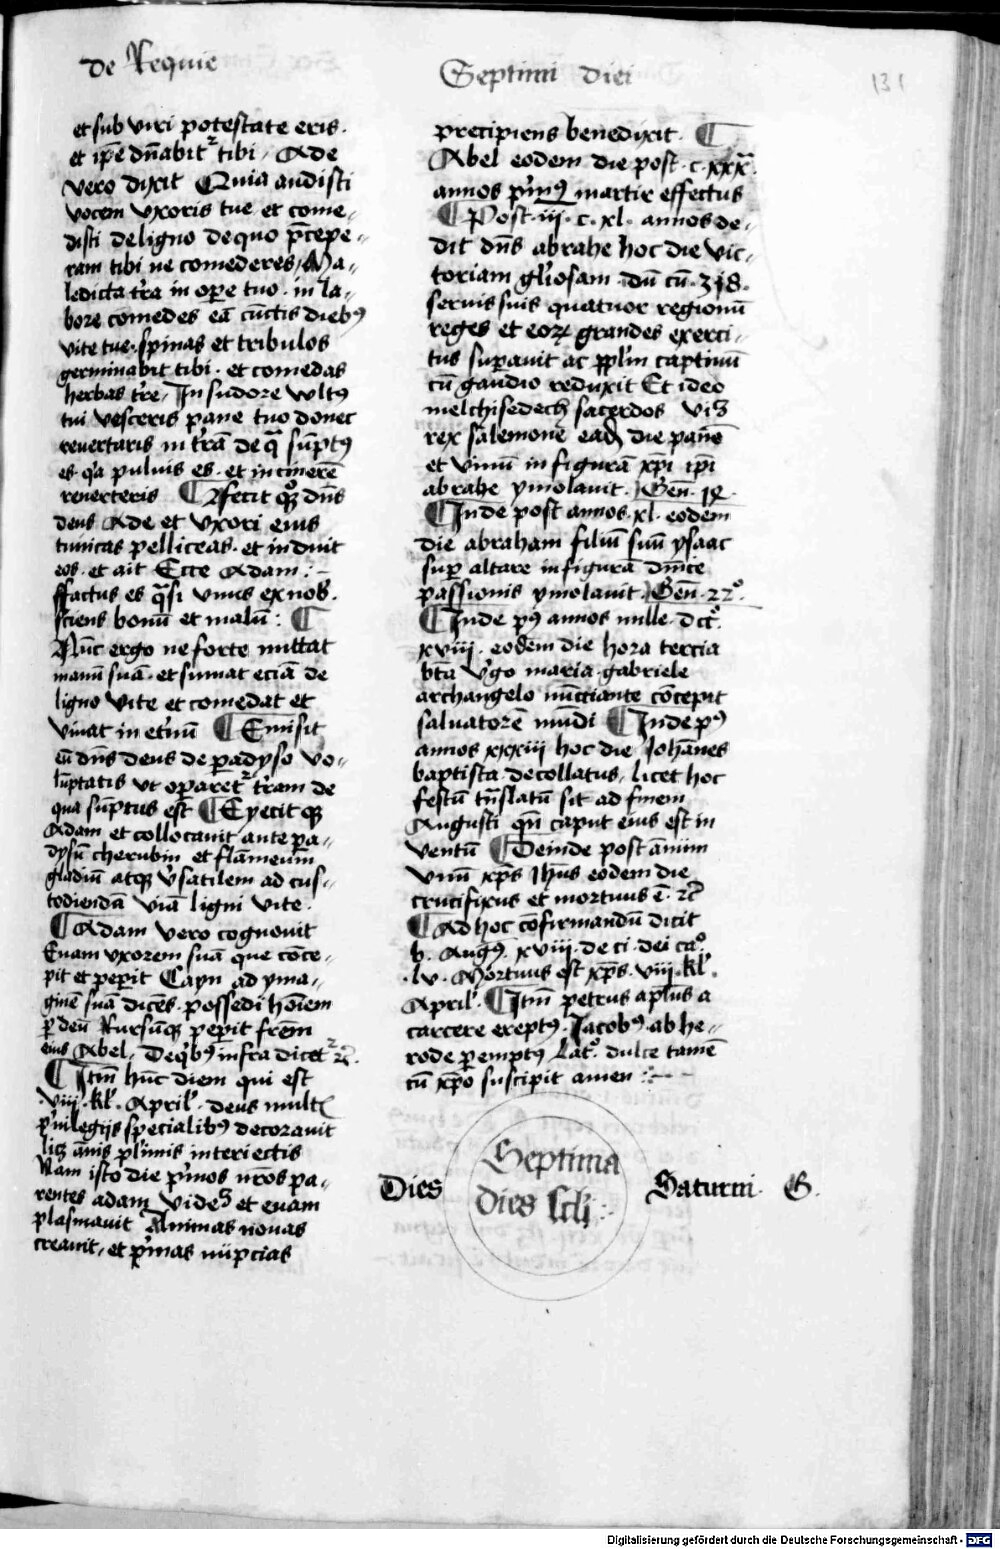 de Requie
Septimi diei
131
et sub viri potestate eris.
et ip̄e dn̄abitr tibi / Ade
vero dixit Quia audisti
vocem vxoris tue et come-
disti de ligno de quo p̄cepe-
ram tibi ne comederes / Ma-
ledicta tr̄a in oꝑe tuo . in la-
bore comedes eā cūctis diebꝰ
vite tue . spinas et tribulos
germinabit tibi . et comedas
herbas tr̄e / In sudore vultꝰ
tui vesceris pane tuo donec
revertaris in tr̄a de qͣ sūptꝰ
es . qͥa puluis es . et in cinerē
reuerteris ¶ fecit qꝫ dn̄s
deus Ade et vxori eius
tunicas pelliceas . et induit
eos . et ait Ecce Adam :-
ffactus es qͣsi vnus ex nob̄ .
sciens bonū et malū : ¶
Nūc ergo ne forte mittat
manū suā . et sumat eciā de
ligno vite et comedat et
viuat in etn̄ū ¶ Emisit
eū dn̄s deus de ꝑadyso vo-
lūptatis vt oꝑaretr tr̄am de
qua sūptus est ¶ Eyecit qꝫ
Adam et collocauit ante ꝑa-
dysū cherubin et flāmeum
gladiū atqꝫ v̄satilem ad cus-
todiendā viā ligni vite .
¶ Adam vero cognouit
Euam vxorem suā que cōce-
pit et peꝑit Cayn ad yma-
ginē suā dicēs . possedi hoīem
ꝑ deū Rursūqꝫ peꝑit frēm
eius Abel / De qͥbꝰ infra dicetr ꝛc̄.
¶ Itm̄ hūc diem qui est
.viij . kl̄ . April̄ . deus mult̄
pͥuilegijs specialibꝰ decorauit
licꝫ ānis pl̄imis interiectis
Nam isto die pͥmos nr̄os pa-
rentes adam videꝫ et euam
plasmauit Animas nouas
creauit / et pͥmas nūpcias
precipiens benedixit . ¶
Abel eodem die post . c . xxx.
annos pͥmꝰ martir effectus
¶ Post . iij . c . xl . annos de-
dit dn̄s abrahe hoc die vic-
toriam gl̄iosam . dū cū . 318 .
seruis suis quatuor regionū
reges et eoꝝ grandes exerci-
tus suꝑauit ac pp̄l̄m captiuū
cū gaudio reduxit Et ideo
melchisedech sacerdos viꝫ
rex salemonē eadē die panē
et vinū in figurā xp̄i ip̄i
abrahe ymolauit . Gen̄ . 14 .
¶ Inde post annos . xl . eodem
die abraham filiū suū ysaac
suꝑ altare in figurā dn̄ice
passionis ymolauit . Gen̄ . 22°.
¶ Inde pꝰ annos mille . dcc°.
xviij . eodem die hora tercia
bt̄a vͥgo maria . gabriele
archangelo nūcciante cōcepit
saluatorē mūdi ¶ Inde pꝰ
annos xxxiij hoc die Johānes
baptista decollatus / licet hoc
festū tn̄slatū sit ad finem
Augusti qn̄ caput eius est in
ventū ¶ Deinde post annum
vnū xp̄s Jhūs eodem die
crucifixus et mortuus ē . ꝛc̄
¶ Ad hoc cōfirmandū dicit
b . Augꝰ . xviij . de ci . dei ca°.
. lv . Mortuus est xp̄s . viij . kl̄ .
April̄ . ¶ Itm̄ petrus apl̄us a
carcere ereptꝰ . Jacobꝰ . ab he-
rode ꝑemptꝰ . dulce tamē
cū xp̄o suscipit amen :-
Septima
Dies dies Saturni . G .